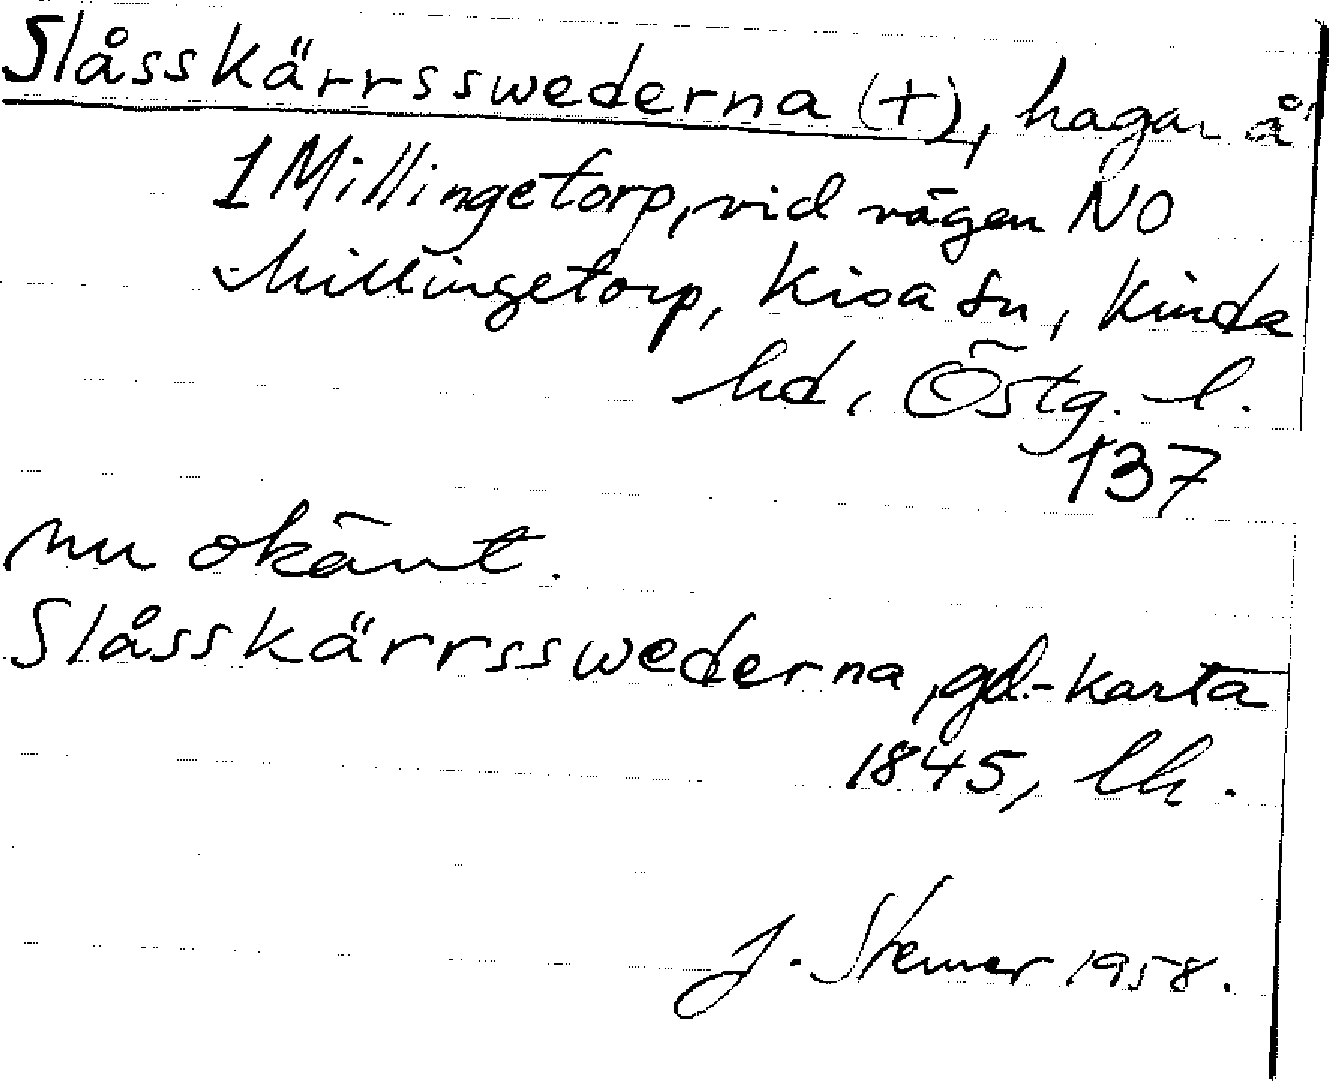 Slåsskärrsswederna (+), hagar å
1 Millingetorp, vid vägen NO
Millingetorp, Kisa sn, Kinda
hd, Östg. l.
137
nu okänt.
Slåsskärrsswederna, gd.-karta
1845, lk.
J. Stemer 1958.